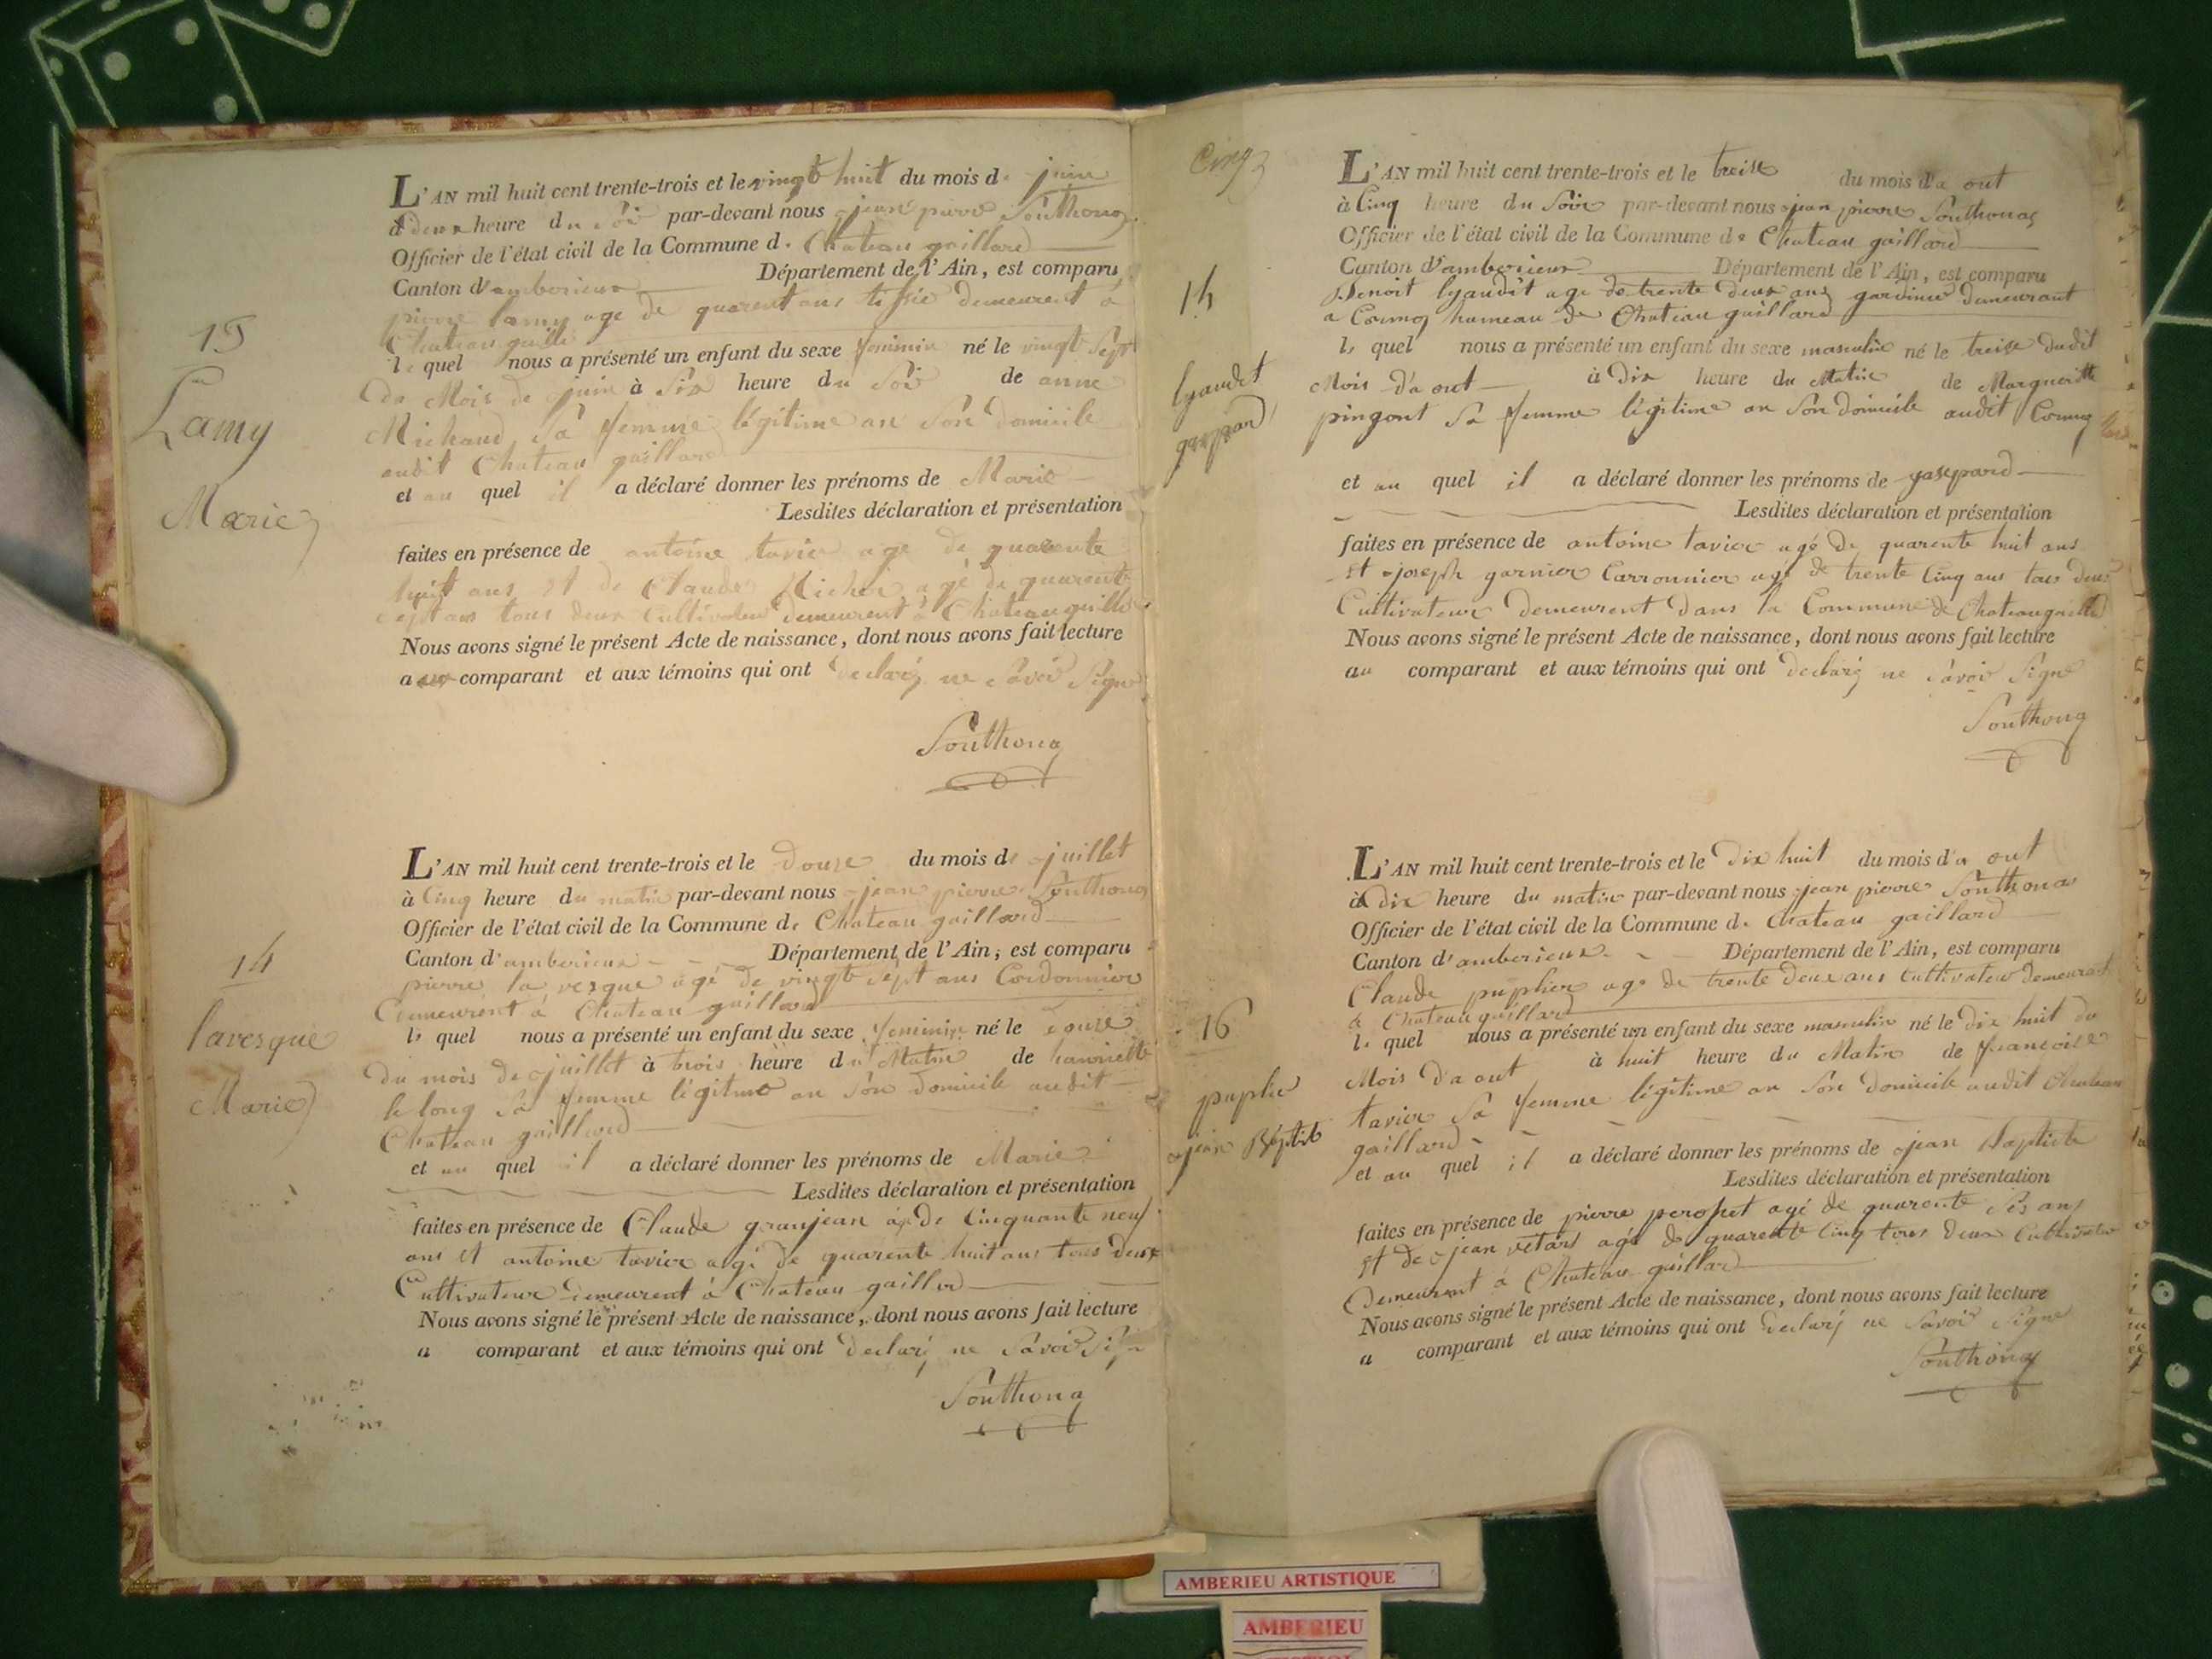 13
Lamy
Marie
L'AN mil huit cent trente-trois et le vingt huit du mois de juin
à deux heure du soir par-devant nous jean pierre Southonaz
Officier de l'état civil de la Commune de Chateau gaillard
Canton d'amberieux Département de l'Ain, est comparu
pierre lamy age de quarent ans tissié demeurent à
Chateau gaillr
le quel nous a présenté un enfant du sexe feminin né le vingt sept
du Mois de juin à six heure du soir de anne
Michaud sa femme légitime an son domicile
audit Chateau gaillard
et au quel il a déclaré donner les prénoms de Marie
Lesdites déclaration et présentation
faites en présence de antoine tavier age de quarente
huit ans et de Claude Micher agé de quarente
sept ans tous deux Cultivateur demeurent à Chateau gaillr
Nous avons signé le présent Acte de naissance, dont nous avons fait lecture
au comparant et aux témoins qui ont declaré ne savoir signé
Southonaz
14
lavesque
Marie
L'AN mil huit cent trente-trois et le douze du mois de juillet
à Cinq heure du matin par-devant nous jean pierre Southonaz
Officier de l'état civil de la Commune de Chateau gaillard
Canton d'amberieux Département de l'Ain, est comparu
pierre lavesque agé de vingt sept ans Cordonnier
demeurent à Chateau gaillard
le quel nous a présenté un enfant du sexe feminin né le douze
du mois de juillet à trois heure du Matin de hanriette
le long sa femme légitime an son domicile audit
Chateau gaillard
et au quel il a déclaré donner les prénoms de Marie
Lesdites déclaration et présentation
faites en présence de Claude granjean agé de Cinquante neuf
ans et antoine tavier agé de quarente huit ans tous deux
Cultivateur demeurent à Chateau gaillard
Nous avons signé le présent Acte de naissance, dont nous avons fait lecture
a comparant et aux témoins qui ont declaré ne savoir sign
Southonaz
Cinq
15
lyaudet
gaspard
L'AN mil huit cent trente-trois et le treise du mois d'a out
à Cinq heure du Soir par-devant nous jean pierre Southonas
Officier de l'état civil de la Commune de Chateau gaillard
Canton d'amberieux Département de l'Ain, est comparu
Benoit lyaudet age de trente deux ans gardinier demeurant
a Cormoz hameau de Chateau gaillard
le quel nous a présenté un enfant du sexe masculin né le treise dudit
Mois d'a out à dix heure du Matin de Margueritte
pingont sa femme légitime an son domicile audit Cormoz
et au quel il a déclaré donner les prénoms de gasepard
Lesdites déclaration et présentation
faites en présence de antoine tavier agé de quarente huit ans
et joseph garnier Carronnier agé de trente Cinq ans tous deux
Cultivateur demeurent dans la Commune de Chateaugaillr
Nous avons signé le présent Acte de naissance, dont nous avons fait lecture
au comparant et aux témoins qui ont declaré ne savoir signé
Southonaz
16
puplier
jean Baptiste
L'AN mil huit cent trente-trois et le dix huit du mois d'a out
à dix heure du matin par-devant nous jean pierre Southonas
Officier de l'état civil de la Commune de Chateau gaillard
Canton d'amberieux Département de l'Ain, est comparu
Claude puplier age de trente deux ans Cultivateur demeurant
à Chateau gaillard
le quel nous a présenté un enfant du sexe masculin né le dix huit du
Mois d'a out à huit heure du Matin de françoise
tavier sa femme légitime an son domicile audit Chateau
gaillard
et au quel il a déclaré donner les prénoms de jean Baptiste
Lesdites déclaration et présentation
faites en présence de pierre perosset agé de quarente sis ans
et de jean vétard agé de quarente Cinq tous deux Cultivateur
demeurent à Chateau gaillard
Nous avons signé le présent Acte de naissance, dont nous avons fait lecture
a comparant et aux témoins qui ont declaré ne savoir signé
Southonaz
AMBERIEU ARTISTIQUE
AMBERIEU